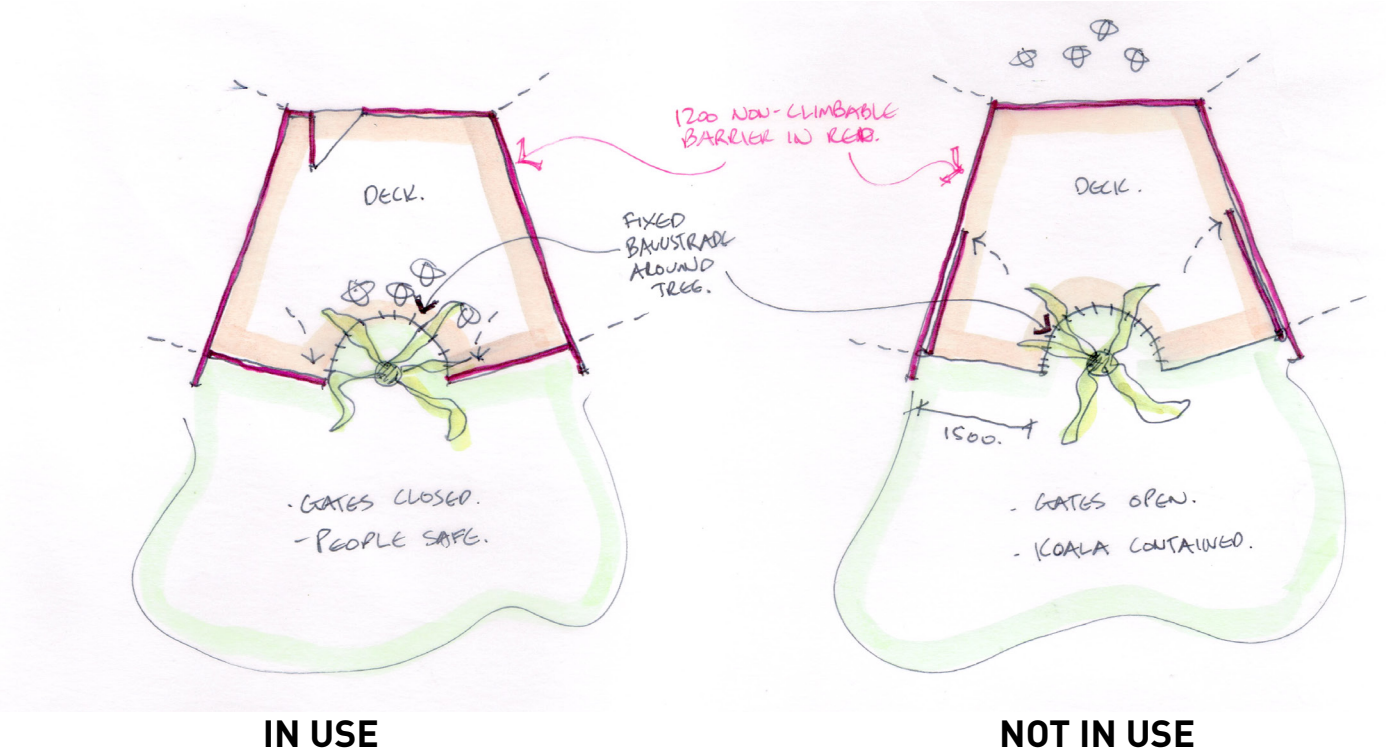 1200 NON-CLIMBABLE
BARRIER IN RED.
DECK.
DECK.
FIXED
BALUSTRADE
AROUND
TREE.
1500.
· GATES CLOSED.
- PEOPLE SAFE.
- GATES OPEN.
- KOALA CONTAINED.
IN USE
NOT IN USE